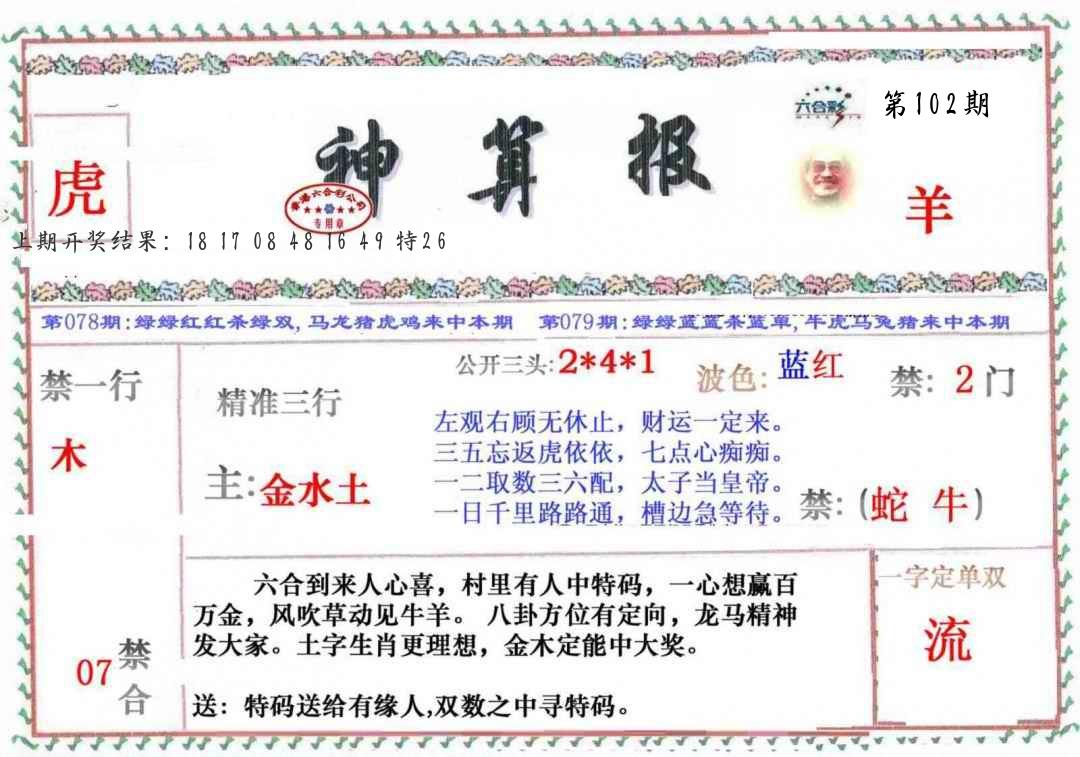 六合彩
第102期
神算报
虎
香港六合彩公司
专用章
羊
上期开奖结果：18 17 08 48 16 49 特26
第078期:绿绿红红杀绿双,马龙猪虎鸡来中本期
第079期:绿绿蓝蓝杀蓝单,牛虎马兔猪来中本期
禁一行
木
精准三行
主:金水土
公开三头:2*4*1
波色:蓝红
禁: 2门
左观右顾无休止，财运一定来。
三五忘返虎依依，七点心痴痴。
一二取数三六配，太子当皇帝。
一日千里路路通，槽边急等待。
禁:(蛇 牛)
07禁合
六合到来人心喜，村里有人中特码，一心想赢百
万金，风吹草动见牛羊。八卦方位有定向，龙马精神
发大家。土字生肖更理想，金木定能中大奖。
送：特码送给有缘人,双数之中寻特码。
一字定单双
流